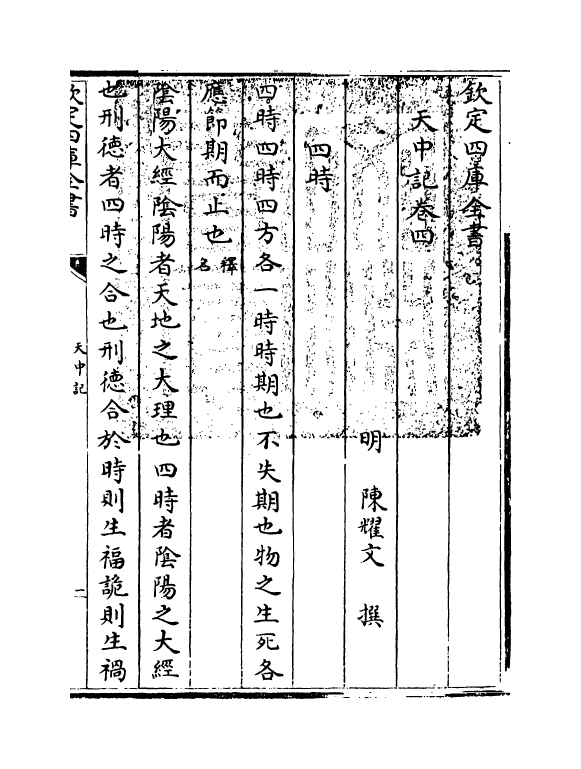 欽定四庫全書
天中記卷四
明 陳耀文 撰
四時
四時四時四方各一時時期也不失期也物之生死各
應節期而止也釋名
陰陽大經陰陽者天地之大理也四時者陰陽之大經
也刑徳者四時之合也刑徳合於時則生福詭則生禍
欽定四庫全書
天中記